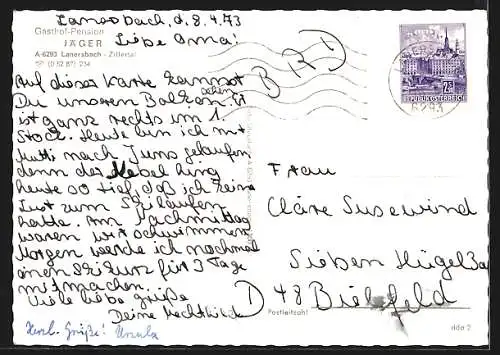 Lanersbach, d. 8.4.73
Gasthof-Pension
JÄGER
A-6293 Lanersbach - Zillertal
(0 52 87) 234
Liebe Oma!
Auf dieser Karte kannst
Du unseren Balkon sehen. Er
ist ganz rechts im 1.
Stock. Heute bin ich mit
Mutti nach Juns gelaufen
denn der Nebel hing
heute so tief, daß ich keine
Lust zum Skilaufen
hatte. Am Nachmittag
waren wir schwimmen.
Morgen werde ich nochmal
einen Skikurs für 3 Tage
mitmachen.
Viele liebe Grüße
Deine Mechthild
Herzl. Grüße! Ursula
BRD
REPUBLIK ÖSTERREICH
6293
Frau
Cläre Susewind
Sieben Hügel
D 48 Bielefeld
Postleitzahl
dda 2